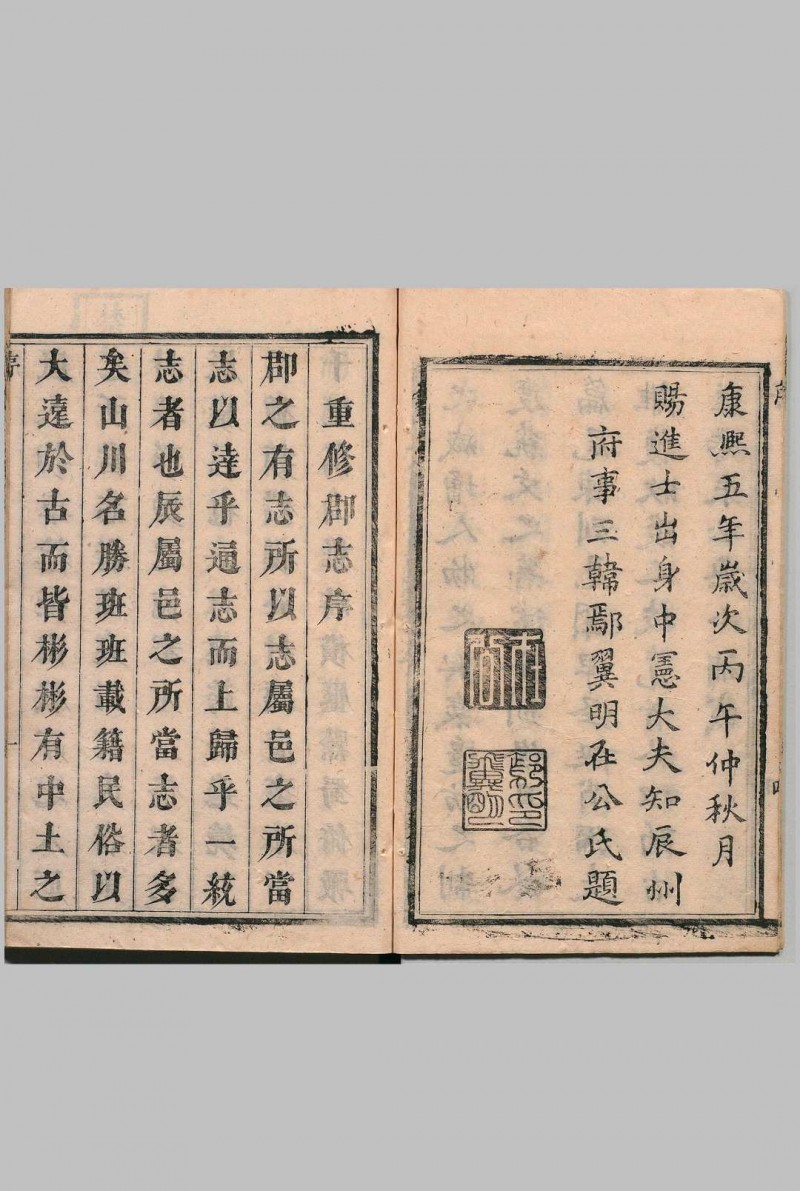 康熙五年歲次丙午仲秋月
賜進士出身中憲大夫知辰州
府事三韓鄢翼明在公氏題
重修郡志序
郡之有志所以志屬邑之所當
志以達乎通志而上歸乎一統
志者也辰屬邑之所當志者多
矣山川名勝班班載籍民俗以
大達於古而皆彬彬有中土之
序
一